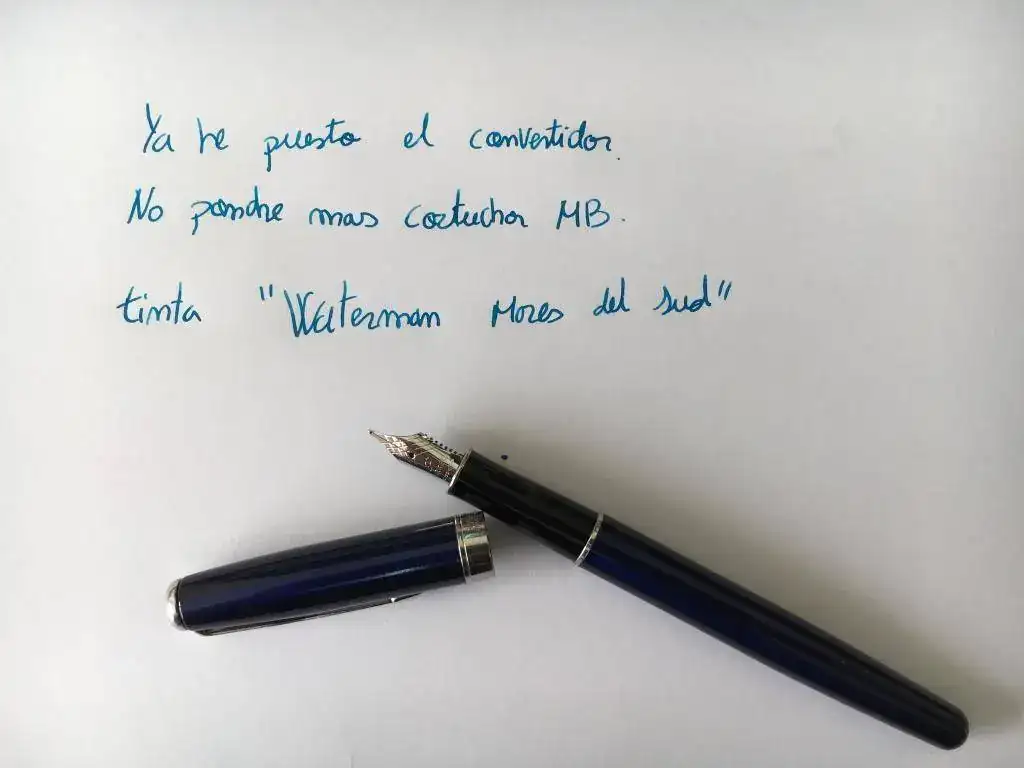 Ya he puesto el convertidor.
No pondre mas cartuchos MB.
tinta "Waterman Mares del sud"